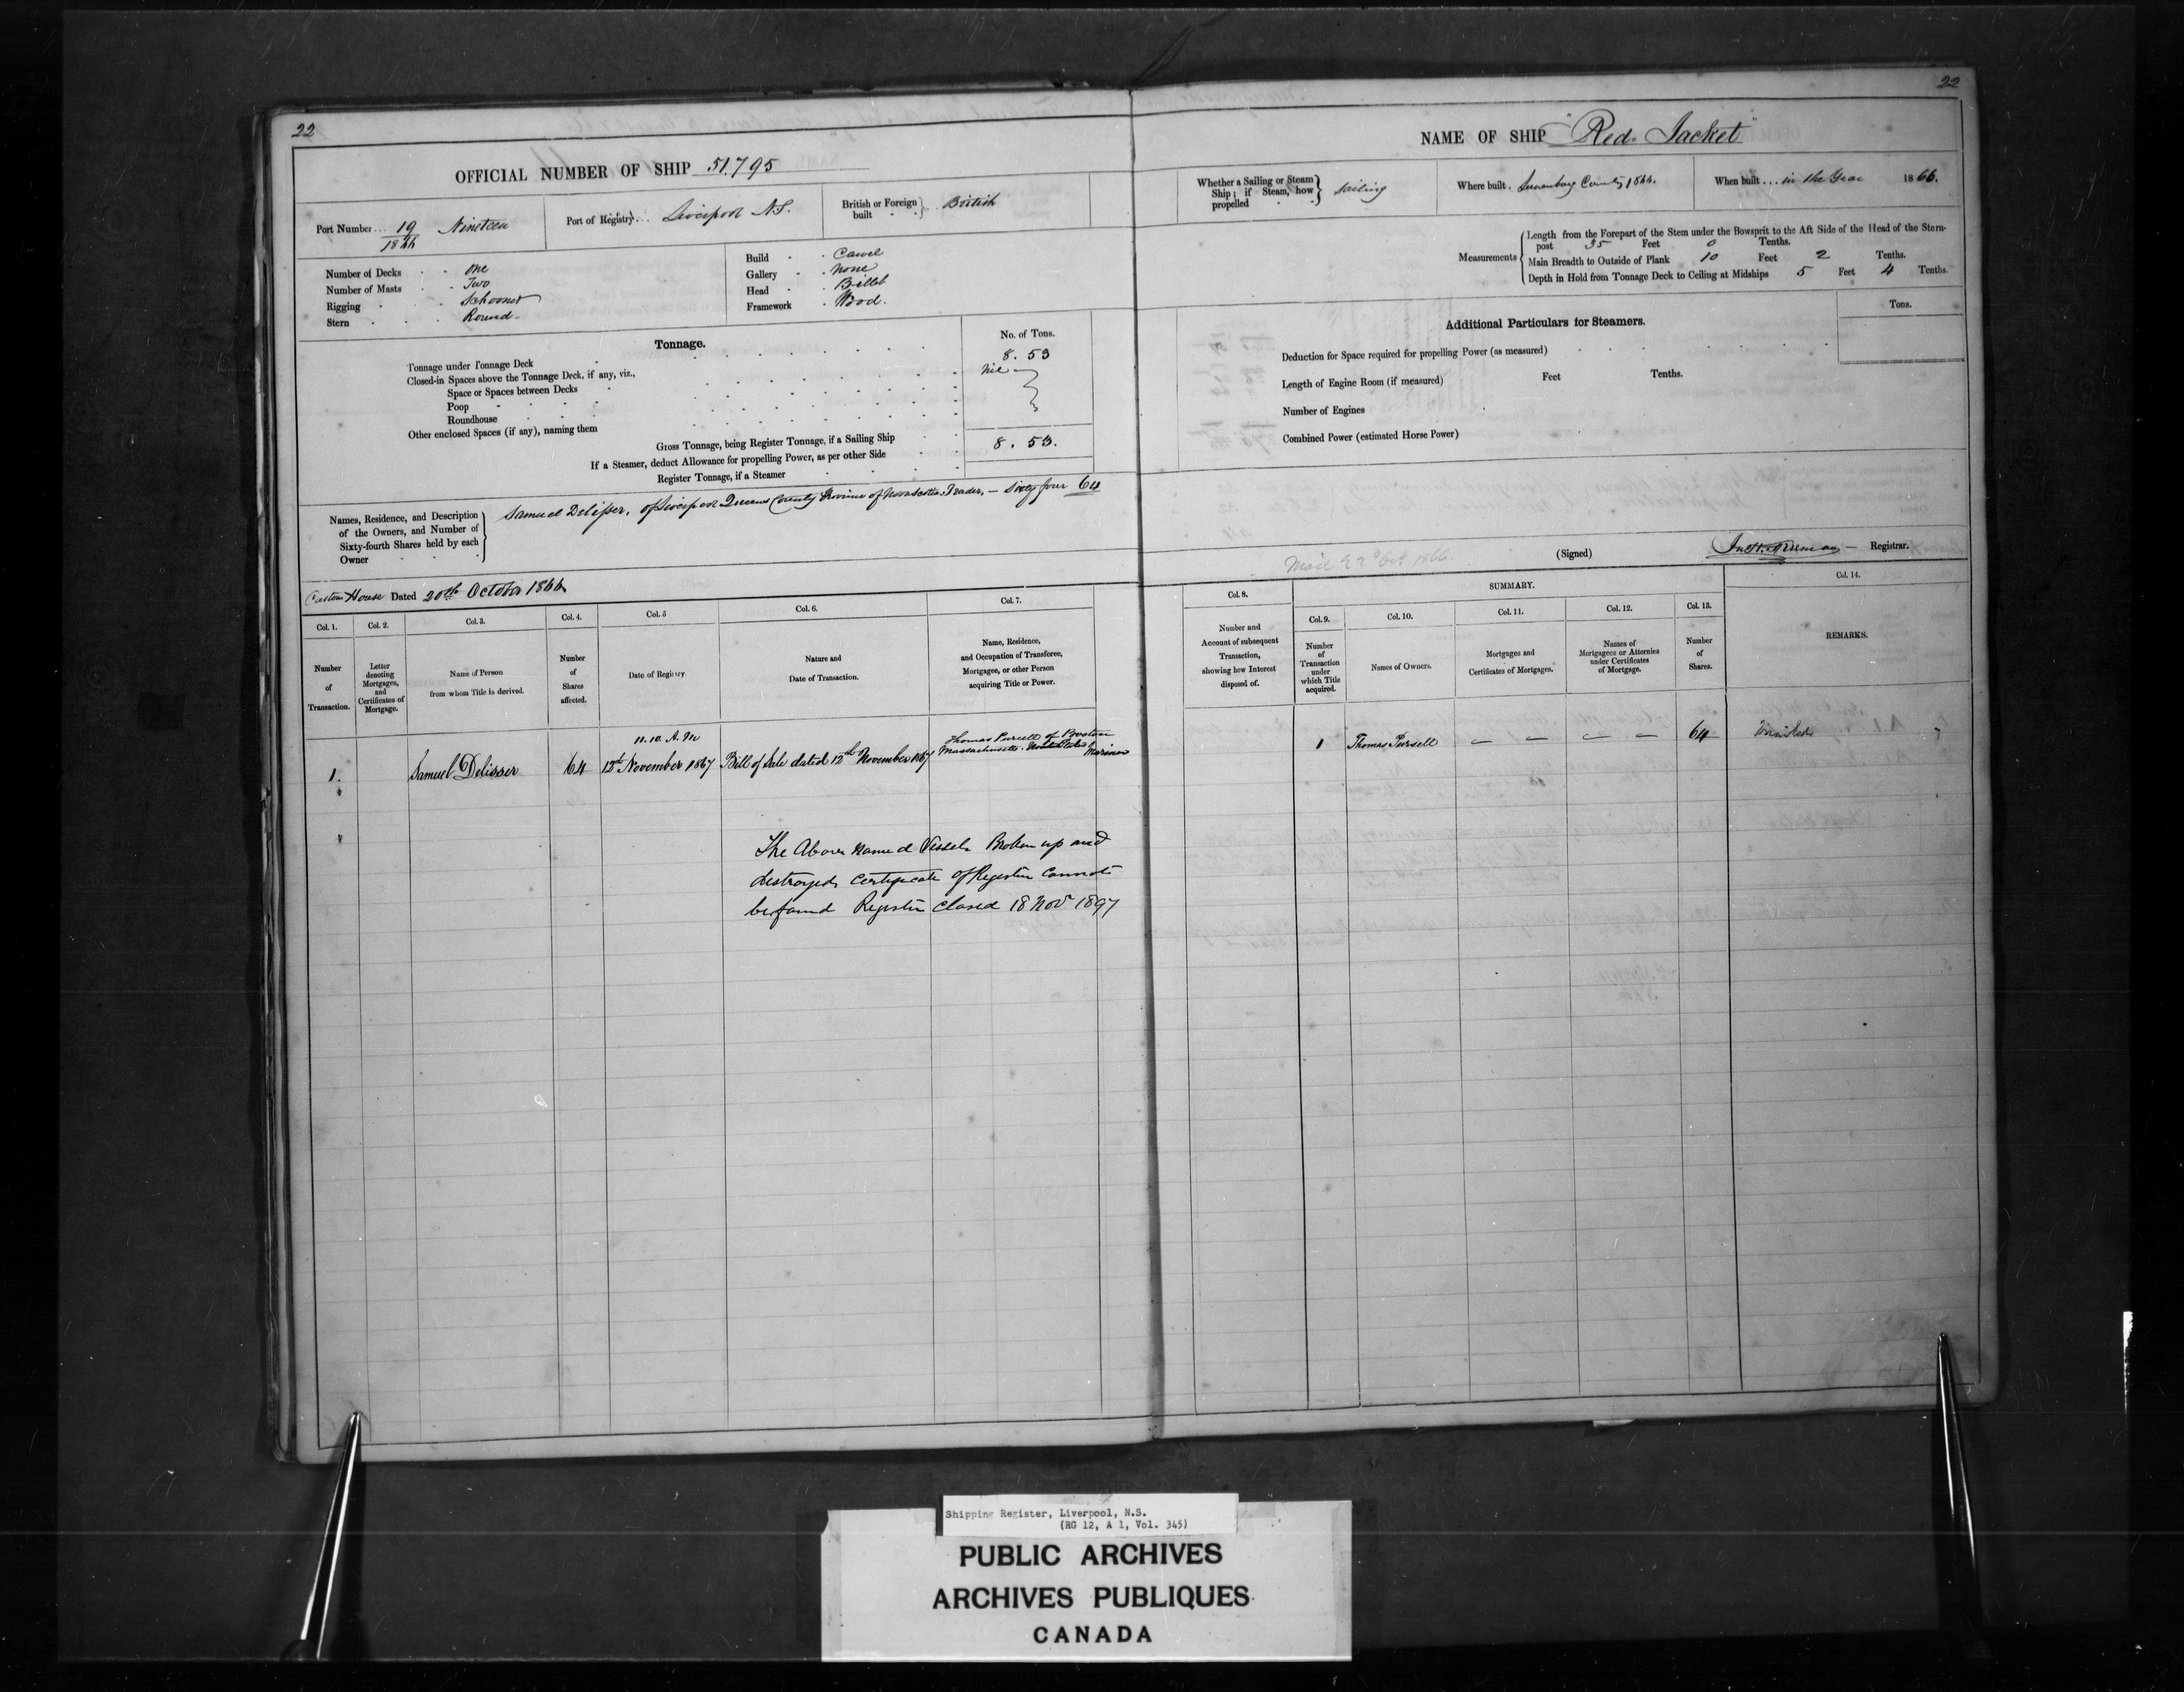 22
OFFICIAL NUMBER OF SHIP 51.795
Port Number... 19/1866 Nineteen
Port of Registry... Liverpool N.S.
British or Foreign built British
Number of Decks One
Number of Masts Two
Rigging Schooner
Stern Round
Build Carvel
Gallery None
Head Billet
Framework Wood.
Tonnage.
No. of Tons.
Tonnage under Tonnage Deck 8.53
Closed-in Spaces above the Tonnage Deck, if any, viz., Nil
Space or Spaces between Decks
Poop
Roundhouse
Other enclosed Spaces (if any), naming them
Gross Tonnage, being Register Tonnage, if a Sailing Ship 8.53.
If a Steamer, deduct Allowance for propelling Power, as per other Side
Register Tonnage, if a Steamer
Names, Residence, and Description of the Owners, and Number of Sixty-fourth Shares held by each Owner
Samuel Delisser, of Liverpool Queens County Province of Nova Scotia, Trader, — Sixty four 64
Custom House Dated 20th October 1866
Col. 1.
Number of Transaction.
Col. 2.
Letter denoting Mortgages, and Certificates of Mortgage.
Col. 3.
Name of Person from whom Title is derived.
Col. 4.
Number of Shares affected.
Col. 5
Date of Registry
Col. 6.
Nature and Date of Transaction.
Col. 7.
Name, Residence, and Occupation of Transferee, Mortgagee, or other Person acquiring Title or Power.
1.
Samuel Delisser
64
11.10. A.M
12th November 1867
Bill of Sale dated 12th November 1867
Thomas Pursell of Boston
Massachusetts United States
Mariner
The Above Named Vessel Broken up and
destroyed certificate of Register Cannot
be found Register Closed 18 Nov 1897
22
NAME OF SHIP "Red Jacket"
Whether a Sailing or Steam Ship; if Steam, how propelled Sailing
Where built. Lunenburg County 1866.
When built... in the Year 1866.
Measurements
Length from the Forepart of the Stem under the Bowsprit to the Aft Side of the Head of the Stern-
post 35 Feet 0 Tenths.
Main Breadth to Outside of Plank 10 Feet 2 Tenths.
Depth in Hold from Tonnage Deck to Ceiling at Midships 5 Feet 4 Tenths.
Additional Particulars for Steamers.
Tons.
Deduction for Space required for propelling Power (as measured)
Length of Engine Room (if measured) Feet Tenths.
Number of Engines
Combined Power (estimated Horse Power)
22d Oct 1866.
(Signed) Registrar.
Col. 8.
Number and Account of subsequent Transaction, showing how Interest disposed of.
SUMMARY.
Col. 9.
Number of Transaction under which Title acquired.
Col. 10.
Names of Owners.
Col. 11.
Mortgages and Certificates of Mortgages.
Col. 12.
Names of Mortgagees or Attornies under Certificates of Mortgage.
Col. 13.
Number of Shares.
Col. 14.
REMARKS.
1
Thomas Pursell
— —
— —
64
Shipping Register, Liverpool, N.S.
(RG 12, A 1, Vol. 345)
PUBLIC ARCHIVES
ARCHIVES PUBLIQUES
CANADA